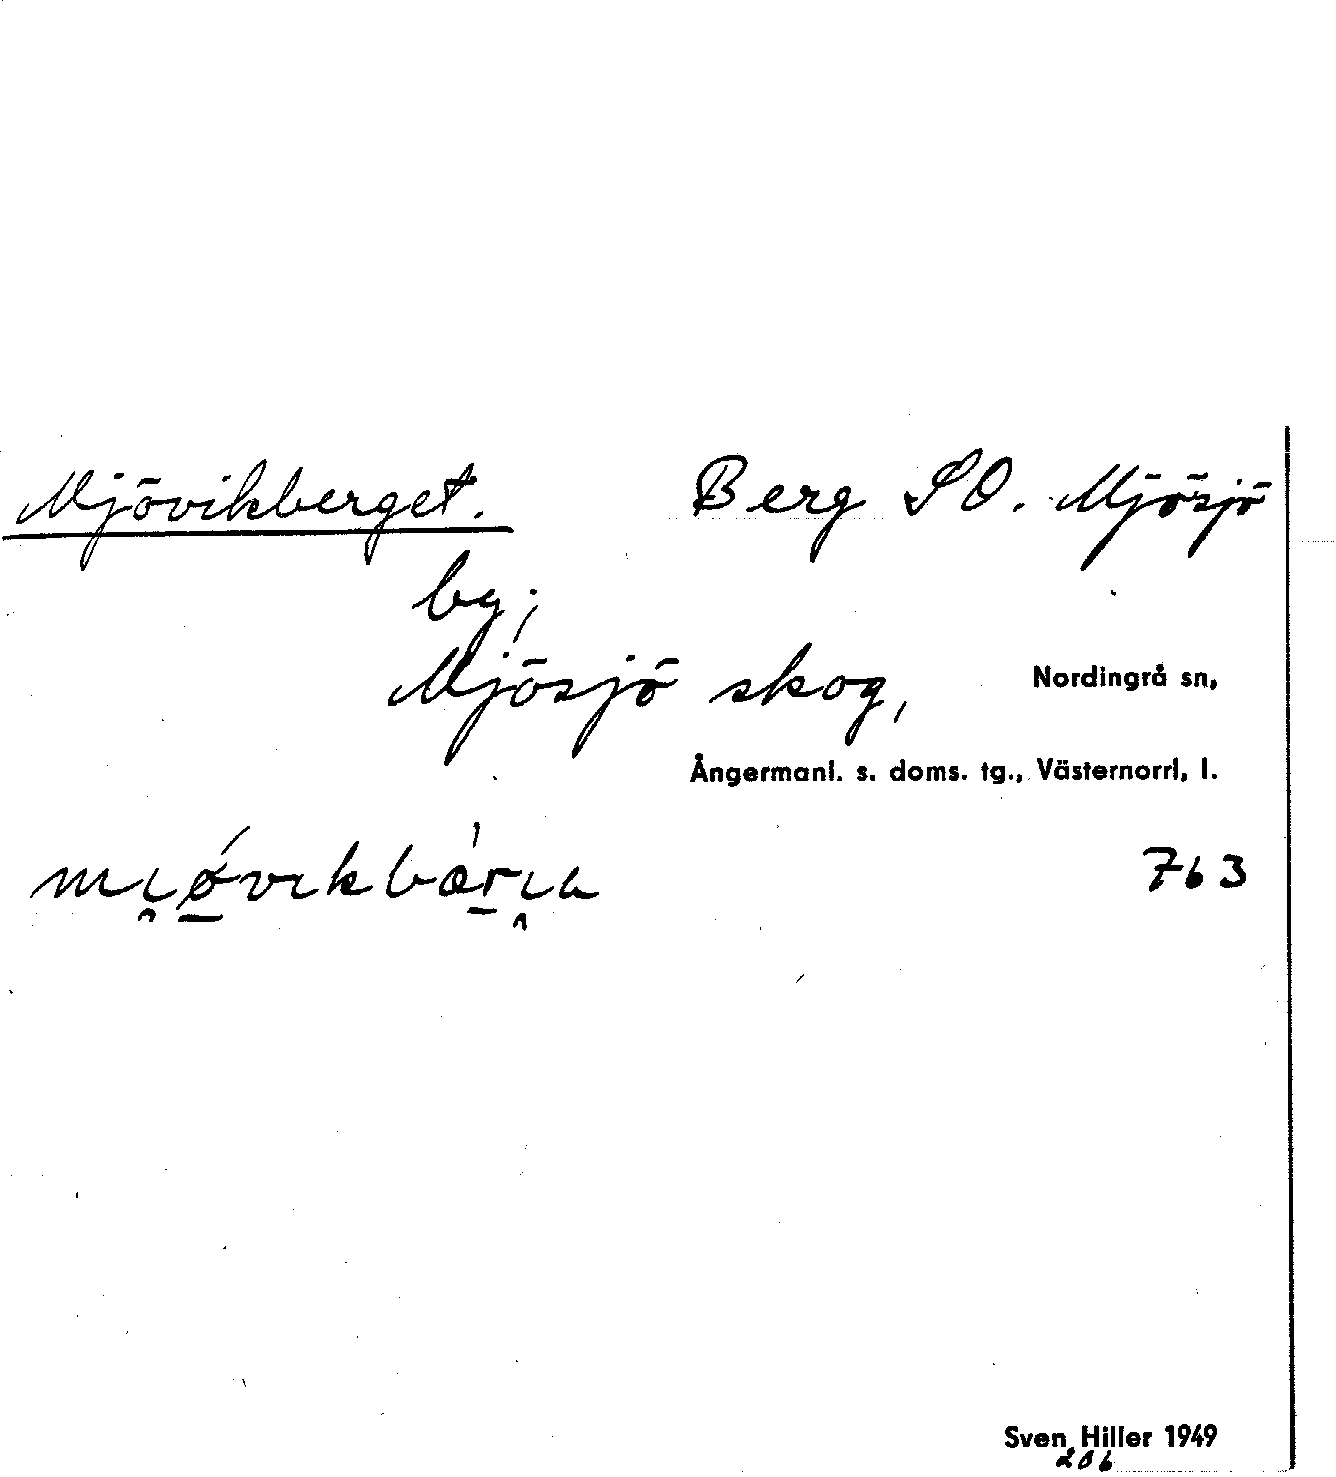 Mjövikberget. Berg SO. Mjösjö
by;
Mjösjö skog, Nordingrå sn,
Ångermanl. s. doms. tg., Västernorrl, l.
763
Sven Hiller 1949
206